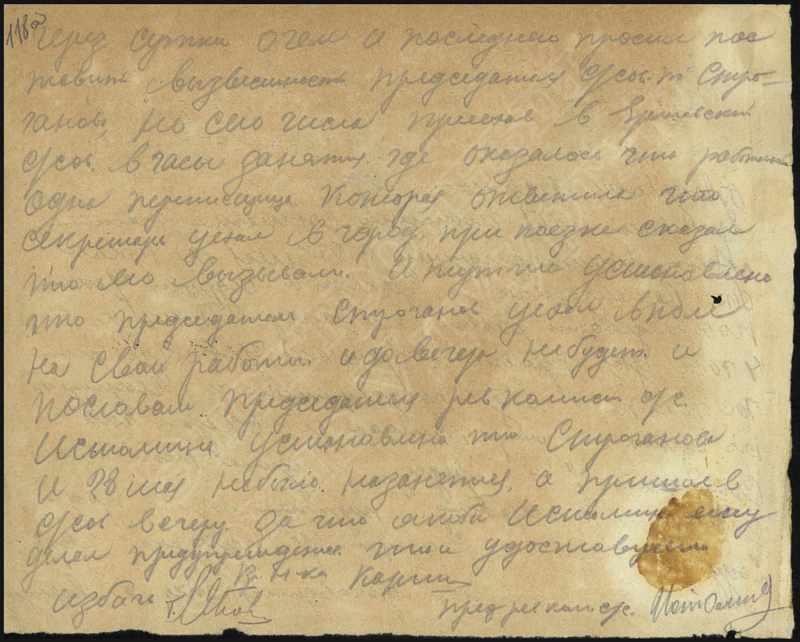 118 об
Через сутки о чем и последняго просил пос
тавить вызвестность председателя с/сов. т. Стро-
ганов, но сего числа пришов в
с/сов. в часы занятия где оказалось что работает
одна переписчица Конторы ответила что
секретарь уехал в город при поезке сказал
что его вызывали. И тутже установлено
что председатель Строганов уехал в поле
на свои работы и до вечера небудет. и
пословам председателя ревкомис с/с.
Истомина установлено что Строганова
и 28 мая небыло назанятия, а пришол в
с/сов вечеру за что якобы Истомин ему
делал предупреждение что и удостоверяем
избач
пред. рев ком с/с. Истомин